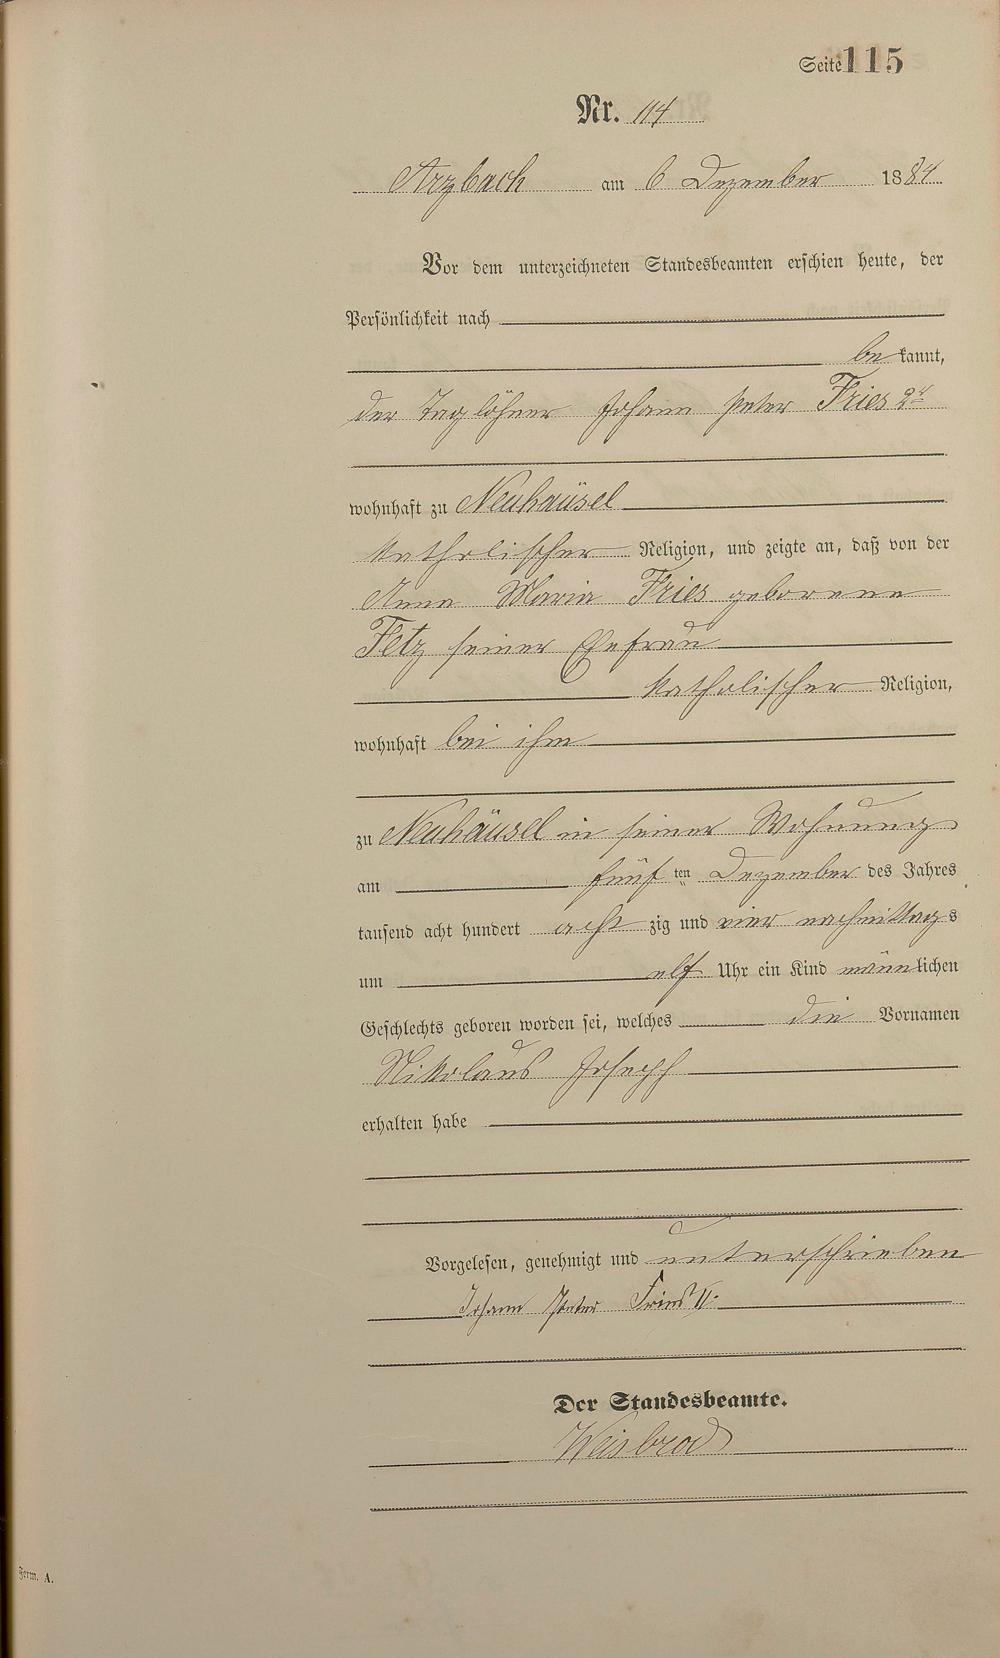 Seite 115
Nr. 114
Arzbach am 6 Dezember 1884
Vor dem unterzeichneten Standesbeamten erschien heute, der
Persönlichkeit nach
bekannt,
der Taglöhner Johann Peter Fries 2r
wohnhaft zu Neuhäusel
katholischer Religion, und zeigte an, daß von der
Anna Maria Fries geborene
Fetz seiner Ehefrau
katholischer Religion,
wohnhaft bei ihm
zu Neuhäusel in seiner Wohnung
am fünften Dezember des Jahres
tausend acht hundert achtzig und vier nachmittags
um elf Uhr ein Kind männlichen
Geschlechts geboren worden sei, welches die Vornamen
Nikolaus Joseph
erhalten habe
Vorgelesen, genehmigt und unterschrieben
Johann Peter Fries II.
Der Standesbeamte.
Weisbrod
Form. A.